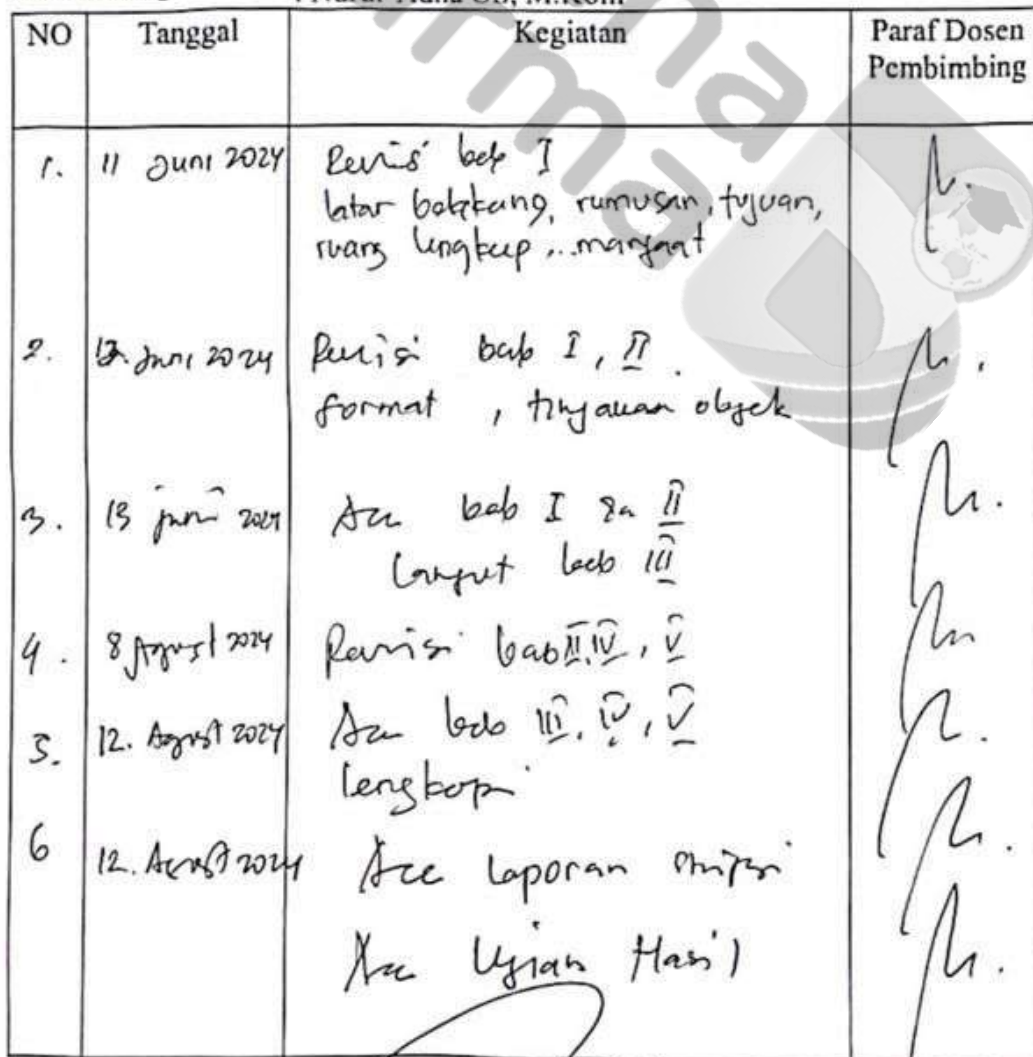 M.Kom
NO Tanggal Kegiatan Paraf Dosen
Pembimbing
1. 11 Juni 2024 Revisi bab I
latar belakang, rumusan, tujuan,
ruang lingkup, manfaat
2. Juni 2024 Revisi bab I, II
format, tinjauan objek
3. 13 juni 2024 Acc bab I II
Lanjut bab III
4. 8 Agust 2024 Revisi bab IV, V
5. 12. Agust 2024 Acc bab III, IV, V
lengkapi
6 12. Agust 2024 Acc Laporan skripsi
Acc Ujian Hasil